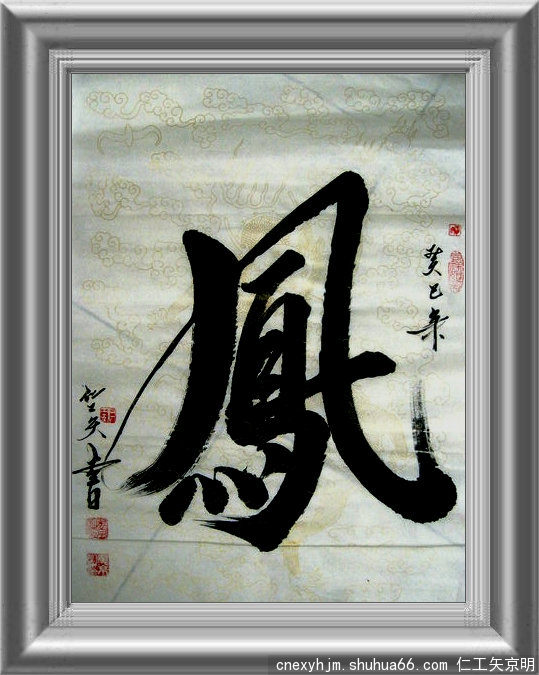 癸巳年
鳳
仁工矢書
cnexyhjm.shuhua66.com 仁工矢京明